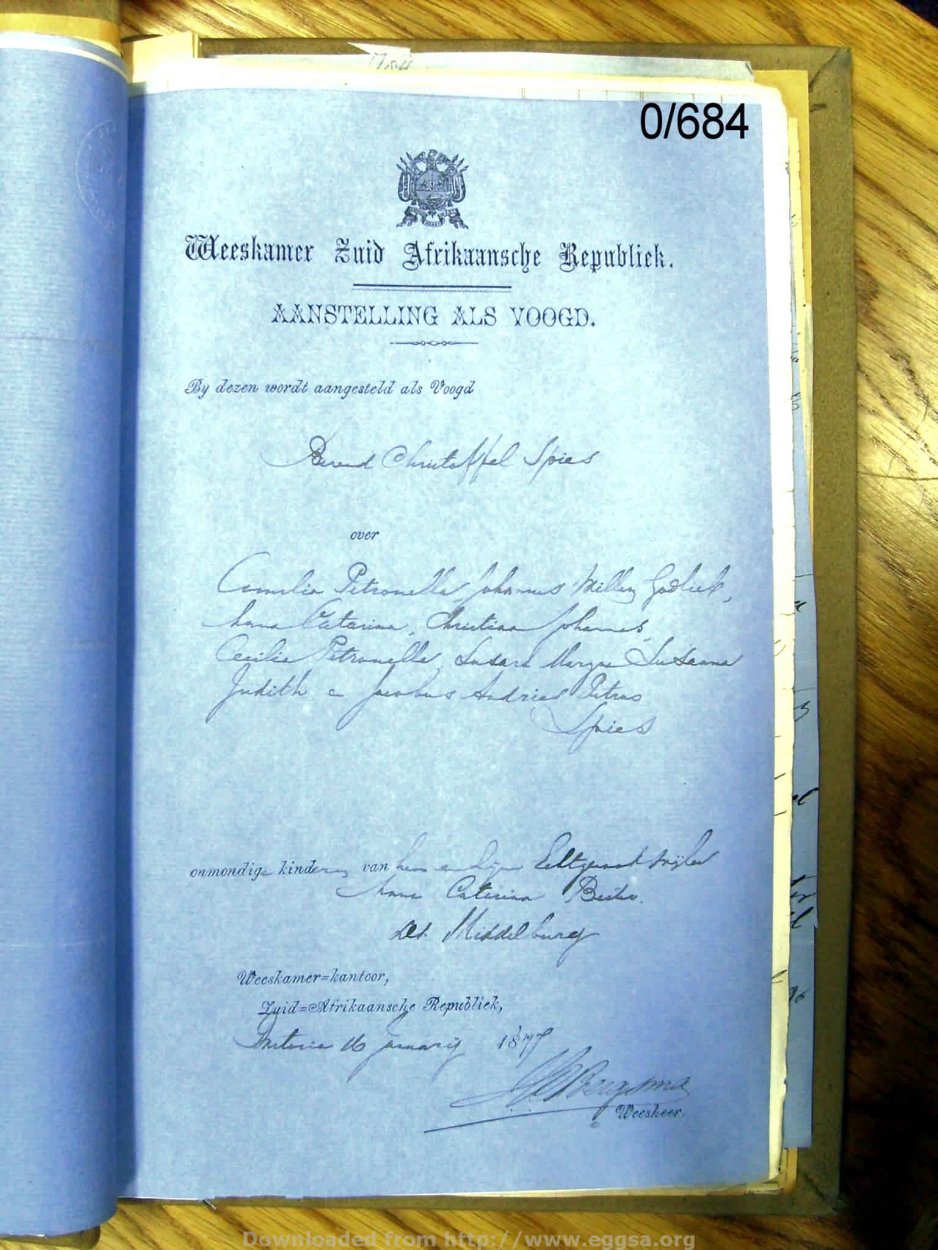 0/684
Weeskamer Zuid Afrikaansche Republiek.
AANSTELLING ALS VOOGD.
By dezen wordt aangesteld als Voogd
Berend Christoffel Spies
over
Cornelia Petronella Johannes Willem Godlieb,
Anna Catarina, Christiaan Johannes,
Cecilia Petronella, Susanna
Judith en Jacobus Andries Petrus
Spies
onmondige kinderen van hem en zijne Echtgenoot wijlen
Anna Catarina
Dist. Middelburg
Weeskamer=kantoor,
Zuid=Afrikaansche Republiek,
Pretoria 16 January 1877
Bergsma
Weesheer.
Downloaded from http://www.eggsa.org